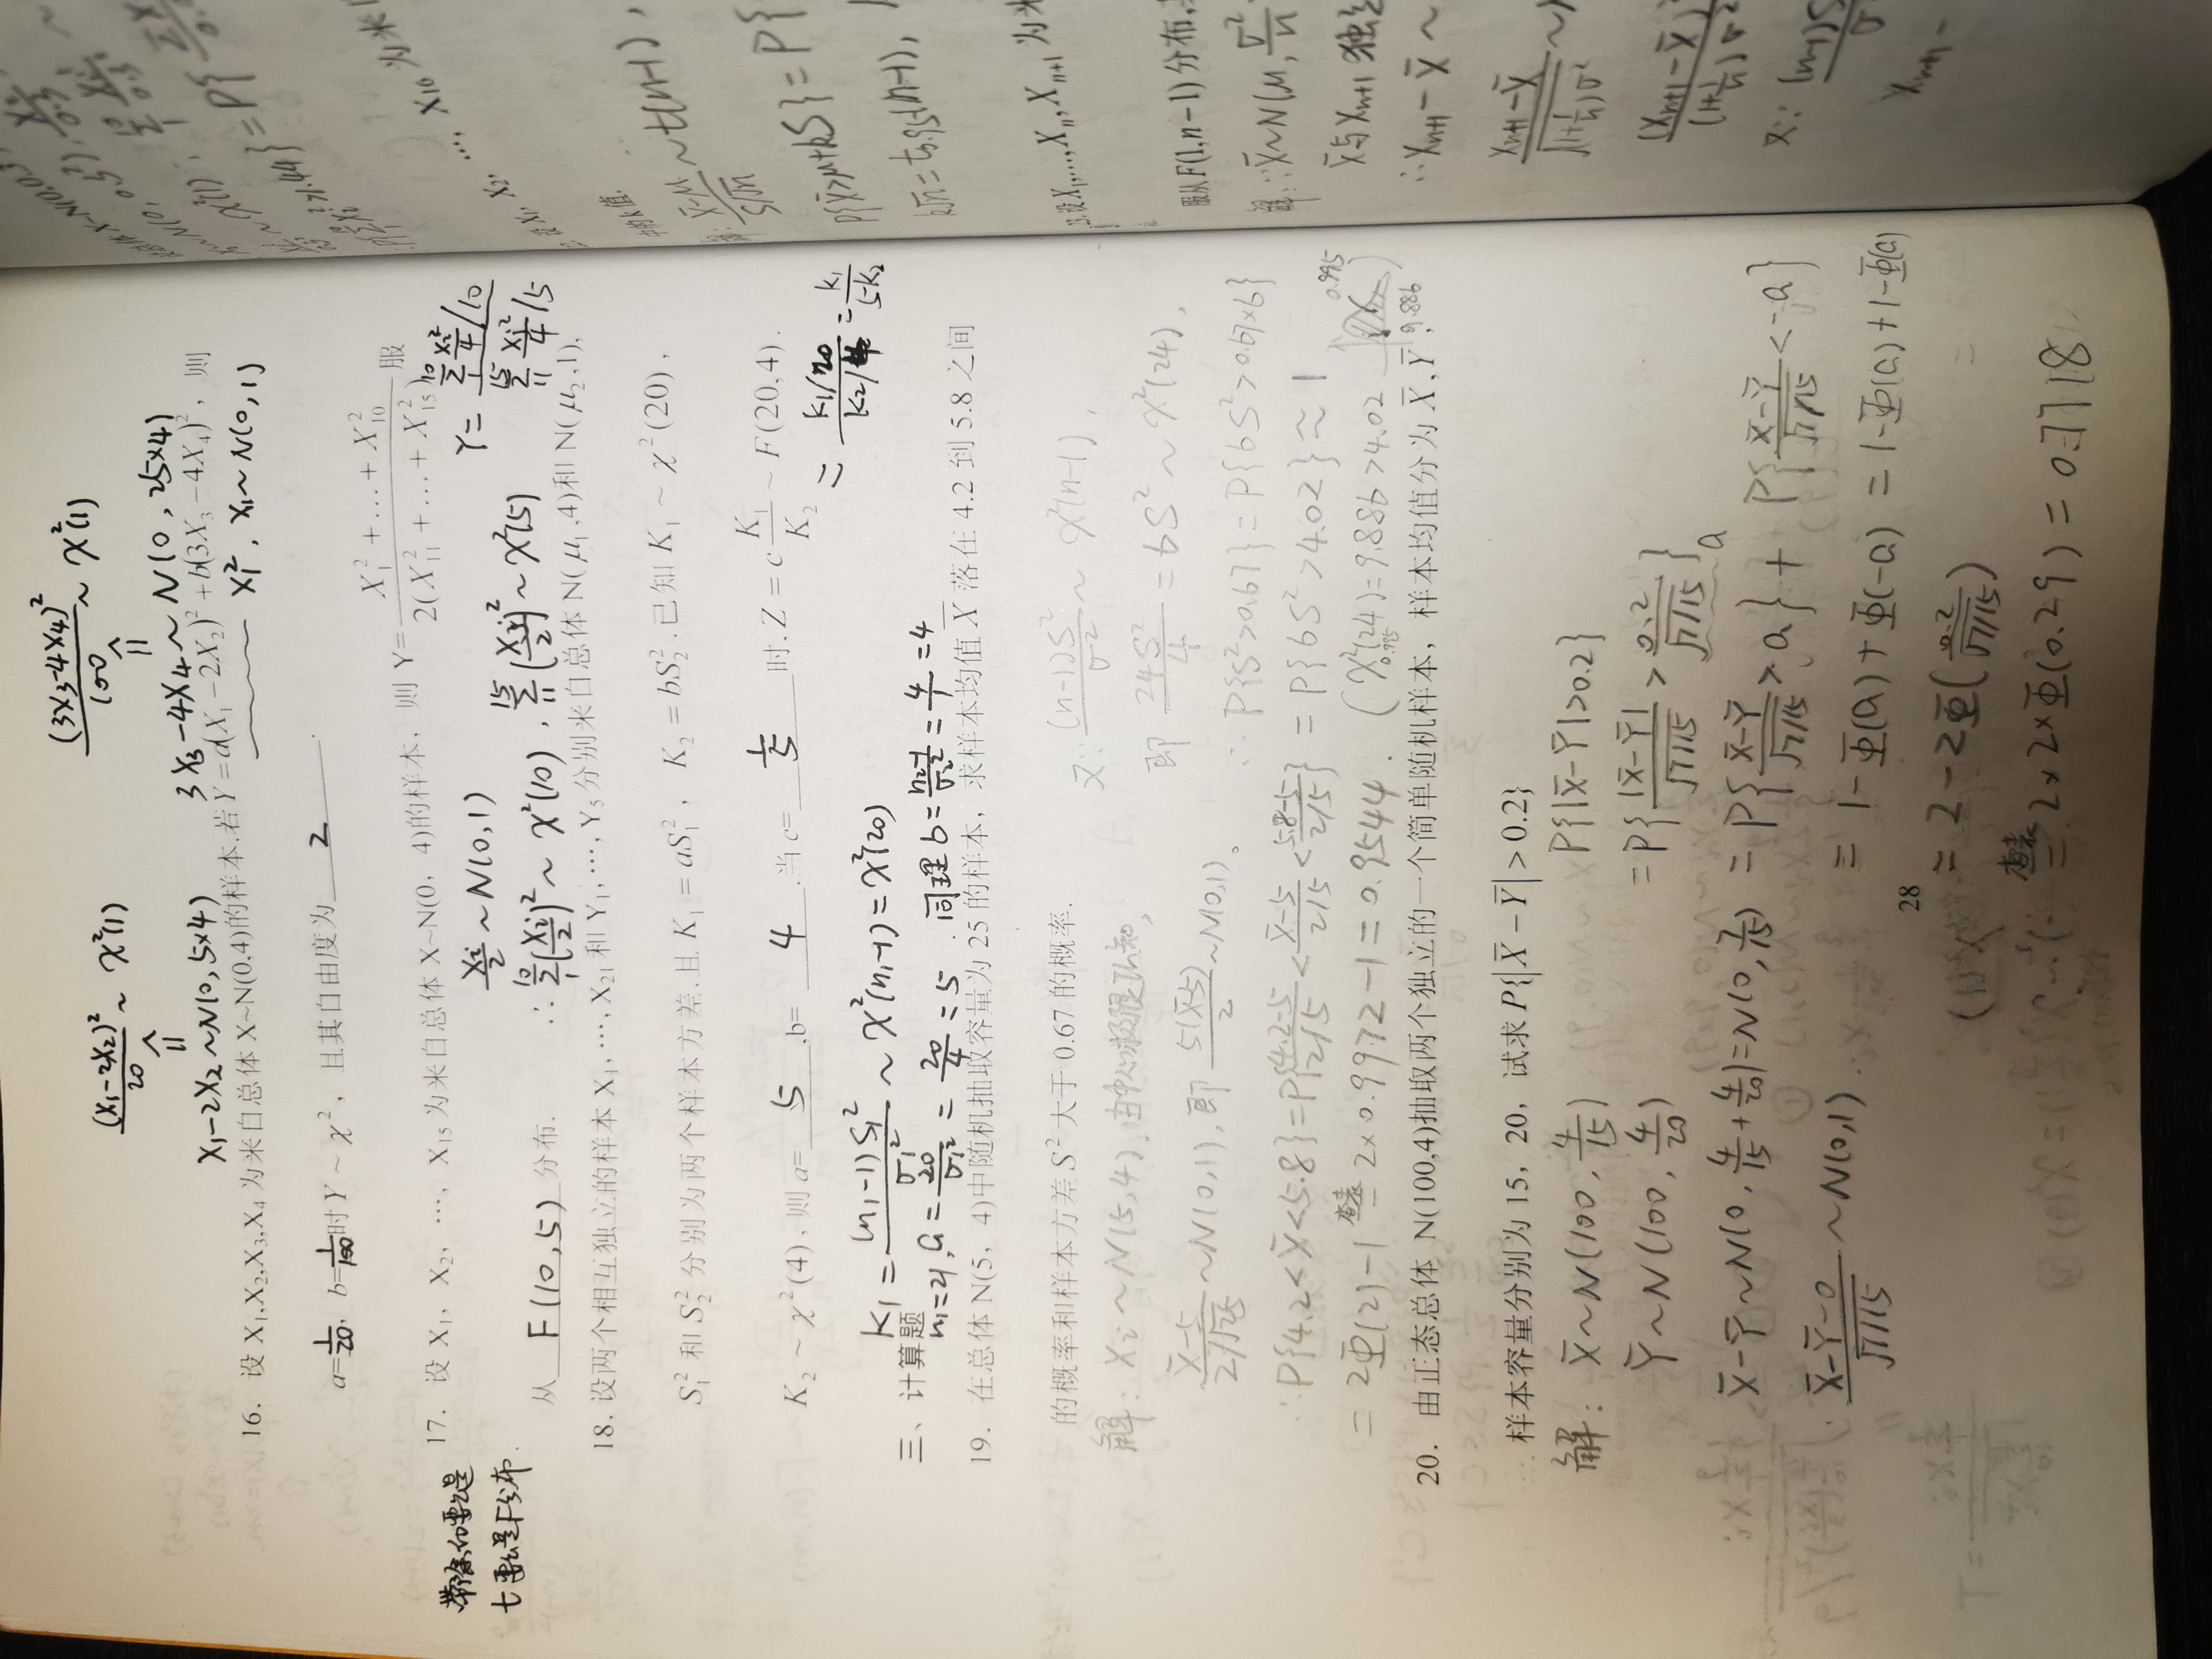 (X₁-2X₂)²/20 ~ χ²(1)
(3X₃-4X₄)²/100 ~ χ²(1)
⇑
⇑
X₁-2X₂ ~ N(0, 5×4)
3X₃-4X₄ ~ N(0, 25×4)
16. 设 X₁,X₂,X₃,X₄ 为来自总体 X~N(0,4)的样本.若 Y = a(X₁-2X₂)² + b(3X₃-4X₄)², 则
X₁², X₁~N(0,1)
a=1/20, b=1/100时 Y ~ χ², 且其自由度为 2 .
17. 设 X₁, X₂, …, X₁₅ 为来自总体 X~N(0, 4)的样本, 则 Y= (X₁²+…+X₁₀²)/(2(X₁₁²+…+X₁₅²)) 服
带除的要么是
t要么是F分布.
Xi/2 ~ N(0,1)
Y = (∑₁¹⁰ Xi²/4 /10)/(∑₁₁¹⁵ Xi²/4 /5)
从 F(10,5) 分布.
∴ ∑₁¹⁰(Xi/2)² ~ χ²(10), ∑₁₁¹⁵(Xi/2)² ~ χ²(5)
18. 设两个相互独立的样本 X₁,…,X₂₁ 和 Y₁,…,Y₅ 分别来自总体 N(μ₁,4)和 N(μ₂,1),
S₁² 和 S₂² 分别为两个样本方差.且 K₁ = aS₁², K₂ = bS₂².已知 K₁ ~ χ²(20),
K₂ ~ χ²(4), 则 a= 5 ,b= 4 .当 c= 1/5 时, Z = c K₁/K₂ ~ F(20,4).
= (K₁/20)/(K₂/4) = K₁/5K₂
K₁ = (n₁-1)S₁²/σ₁² ~ χ²(n₁-1) = χ²(20)
三、计算题
n₁=21, a = 20/σ₁² = 20/4 = 5 . 同理 b = n₂-1/σ₂² = 4/1 = 4
19. 在总体 N(5, 4)中随机抽取容量为 25 的样本, 求样本均值 X̄ 落在 4.2 到 5.8 之间
的概率和样本方差 S² 大于 0.67 的概率.
解: Xi ~ N(5,4), 由中心极限TL知,
X̄-5/(2/√25) ~ N(0,1), 即 5(X̄-5)/2 ~ N(0,1)。
∴ P{4.2<X̄<5.8} = P{4.2-5/(2/5) < X̄-5/(2/5) < 5.8-5/(2/5)}
= 2Φ(2)-1 查表= 2×0.9972-1 = 0.9544 .
又∵ (n-1)S²/σ² ~ χ²(n-1),
即 24S²/4 = 6S² ~ χ²(24),
∴ P{S²>0.67} = P{6S²>0.67×6}
= P{6S²>4.02} ≈ 1
(χ²₀.₉₉₅(24) = 9.886>4.02
0.995
9.886 )
20. 由正态总体 N(100,4)抽取两个独立的一个简单随机样本, 样本均值分为 X̄,Ȳ,
样本容量分别为 15, 20, 试求 P{|X̄-Ȳ|>0.2}
解: X̄ ~ N(100, 4/15)
Ȳ ~ N(100, 4/20)
X̄-Ȳ ~ N(0, 4/15+4/20) = N(0, 7/15)
X̄-Ȳ-0/√7/15 ~ N(0,1).
P{|X̄-Ȳ|>0.2}
= P{|X̄-Ȳ|/√7/15 > 0.2/√7/15} a
= P{X̄-Ȳ/√7/15 > a} + P{X̄-Ȳ/√7/15 < -a}
= 1-Φ(a)+Φ(-a) = 1-Φ(a)+1-Φ(a)
28
= 2-2Φ(0.2/√7/15)
查表= 2×2×Φ(0.29) = 0.7718
X₁, X₂, …, X₁₀ 为来
中的k值.
X̄-μ/(S/√n) ~ t(n-1),
P{X̄>μ+kS} = P{
k√n = t₀.₉₅(n-1),
3.设 X₁,…,Xₙ,Xₙ₊₁ 为来
服从 F(1,n-1) 分布,
解: ∵ X̄~N(μ, σ²/n
X̄与Xₙ₊₁ 独立
∴ Xₙ₊₁-X̄ ~
Xₙ₊₁-X̄/√(1+1/n)σ² ~
(Xₙ₊₁-X̄)/(1+1/n)σ²
又∵ (n-1)S
Xₙ₊₁-